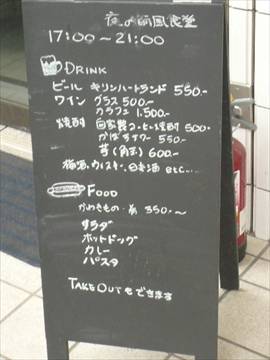 夜の 食堂
17:00～21:00
DRINK
ビール キリンハートランド 550-
ワイン グラス 500.-
カラフェ 1,500.-
焼酎 自家製コーヒー焼酎 500-
かぼすサワー 550-
芋(角玉) 600-
梅酒、ウイスキー、日本酒 etc...
FOOD
かわきもの 350.-～
サラダ
ホットドッグ
カレー
パスタ
TAKE OUTもできます